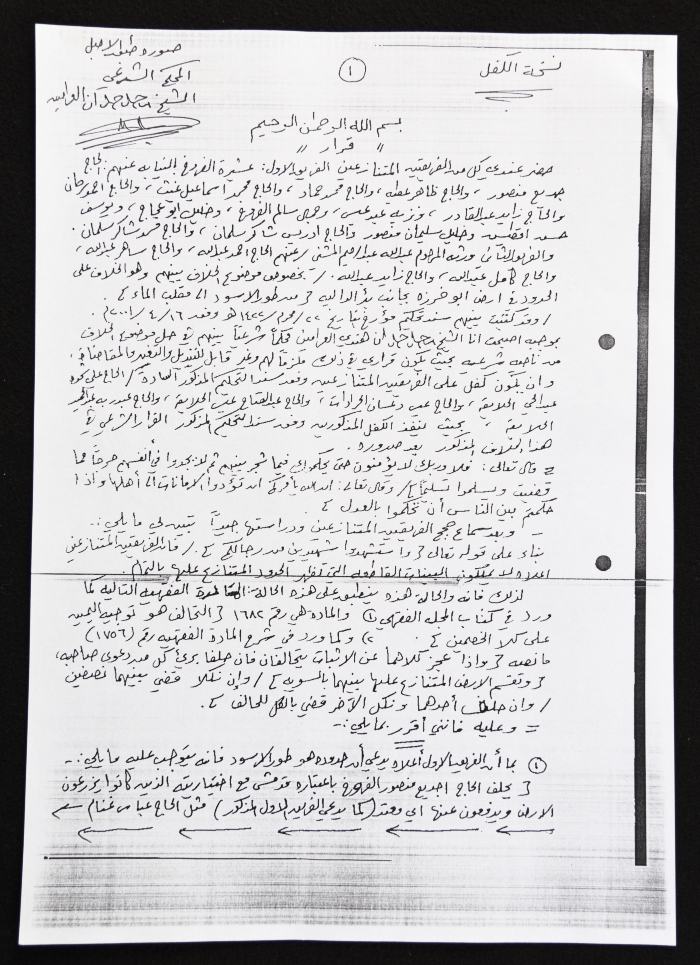 صورة طبق الأصل
المحكم الشرعي
الشيخ
نسخة الكفل
١
بسم الله الرحمن الرحيم
" قرار "
حضر عندي كل من الفريقين المتنازعين الفريق الأول: عشيرة بالنيابة عنهم: الحاج
منصور ، والحاج ظاهر عطيه ، والحاج محمد حماد ، والحاج محمد اسماعيل ، والحاج احمد
والحاج زايد عبدالقادر ، سالم ، وخليل ابو عجاج ، ويوسف
وخليل سلمان منصور والحاج ادريس شاكر سلمان ، والحاج محمد شاكر سلمان .
والفريق الثاني ورثة المرحوم عبدالله عبدالرحيم عنهم الحاج احمد عبدالله ، والحاج ساهر عبدالله ،
والحاج كامل عبدالله ، والحاج زايد عبدالله . / بخصوص موضوع الخلاف بينهم وهو الخلاف على
الحدود في ارض ابو خرزه بجانب بئر الدالية { من طور الاسود الى مقلب الماء } .
/ وقد كتبت بينهم سند تحكيم مؤرخ بتاريخ ٢٢/محرم/١٤٢٢هـ وفق ١٦/٤/٢٠٠١م .
بموجبه اصبحت انا الشيخ محكماً شرعياً بينهم في حل موضوع الخلاف
من ناحية شرعيه بحيث يكون قراري في ذلك ملزماً لهم وغير قابل للتبديل والتغيير والمقاضاة .
وان يكون كفل على الفريقين المتنازعين وفق سند التحكيم المذكور السادة / الحاج علي
عبدالحي ، والحاج غسان ، والحاج عبدالفتاح ، والحاج عبدربه
، بحيث ينفذ الكفل المذكورين وفق سند التحكيم المذكور القرار الشرعي في
هذا الخلاف المذكور بعد صدوره .
= قال تعالى: فلا وربك لا يؤمنون حتى يحكموك فيما شجر بينهم ثم لا يجدوا في أنفسهم حرجاً مما
قضيت ويسلموا تسليماً / وقال تعالى: ان الله يأمركم ان تؤدوا الامانات الى أهلها واذا
حكمتم بين الناس أن تحكموا بالعدل } .
- وبعد سماع حجج الفريقين المتنازعين ودراستها جيداً تبين لي ما يلي :-
بناء على قوله تعالى { واستشهدوا شهيدين من رجالكم } . / فان الفريقين المتنازعين
اعلاه لا يملكون البينات القاطعه التي تظهر الحدود المتنازع عليها بالتمام .
لذلك فانه والحالة هذه ينطبق على هذه الحالة: المادة الفقهيه التالية كما
ورد في كتاب المجلة الفقهي ١) والماده هي رقم ١٦٨٢ { التحالف هو توجيه اليمين
على كلا الخصمين } . ٢) وكما ورد في شرح المادة الفقهيه رقم (١٧٥٦)
ما نصه { واذا عجز كلاهما عن الاثبات يتحالفان فان حلفا برئ كل من دعوى صاحبه،
{ وتقسم الارض المتنازع عليها بينهما بالسويه } / وإن نكلا قضي بينهما نصفين
/ وإن حلف أحدهما ونكل الآخر قضي بالكل للحالف } .
= وعليه فانني أقرر بما يلي :-
١ بما أن الفريق الأول أعلاه يدعي أن حدوده هو طور الاسود فانه يتوجب عليه ما يلي :-
{ يحلف الحاج منصور باعتباره قد مشى مع اختيارية الذين كانوا يزرعون
الارض ويدفعون عنها (كما يدعي الفريق الاول المذكور) مثل الحاج عباس غنام